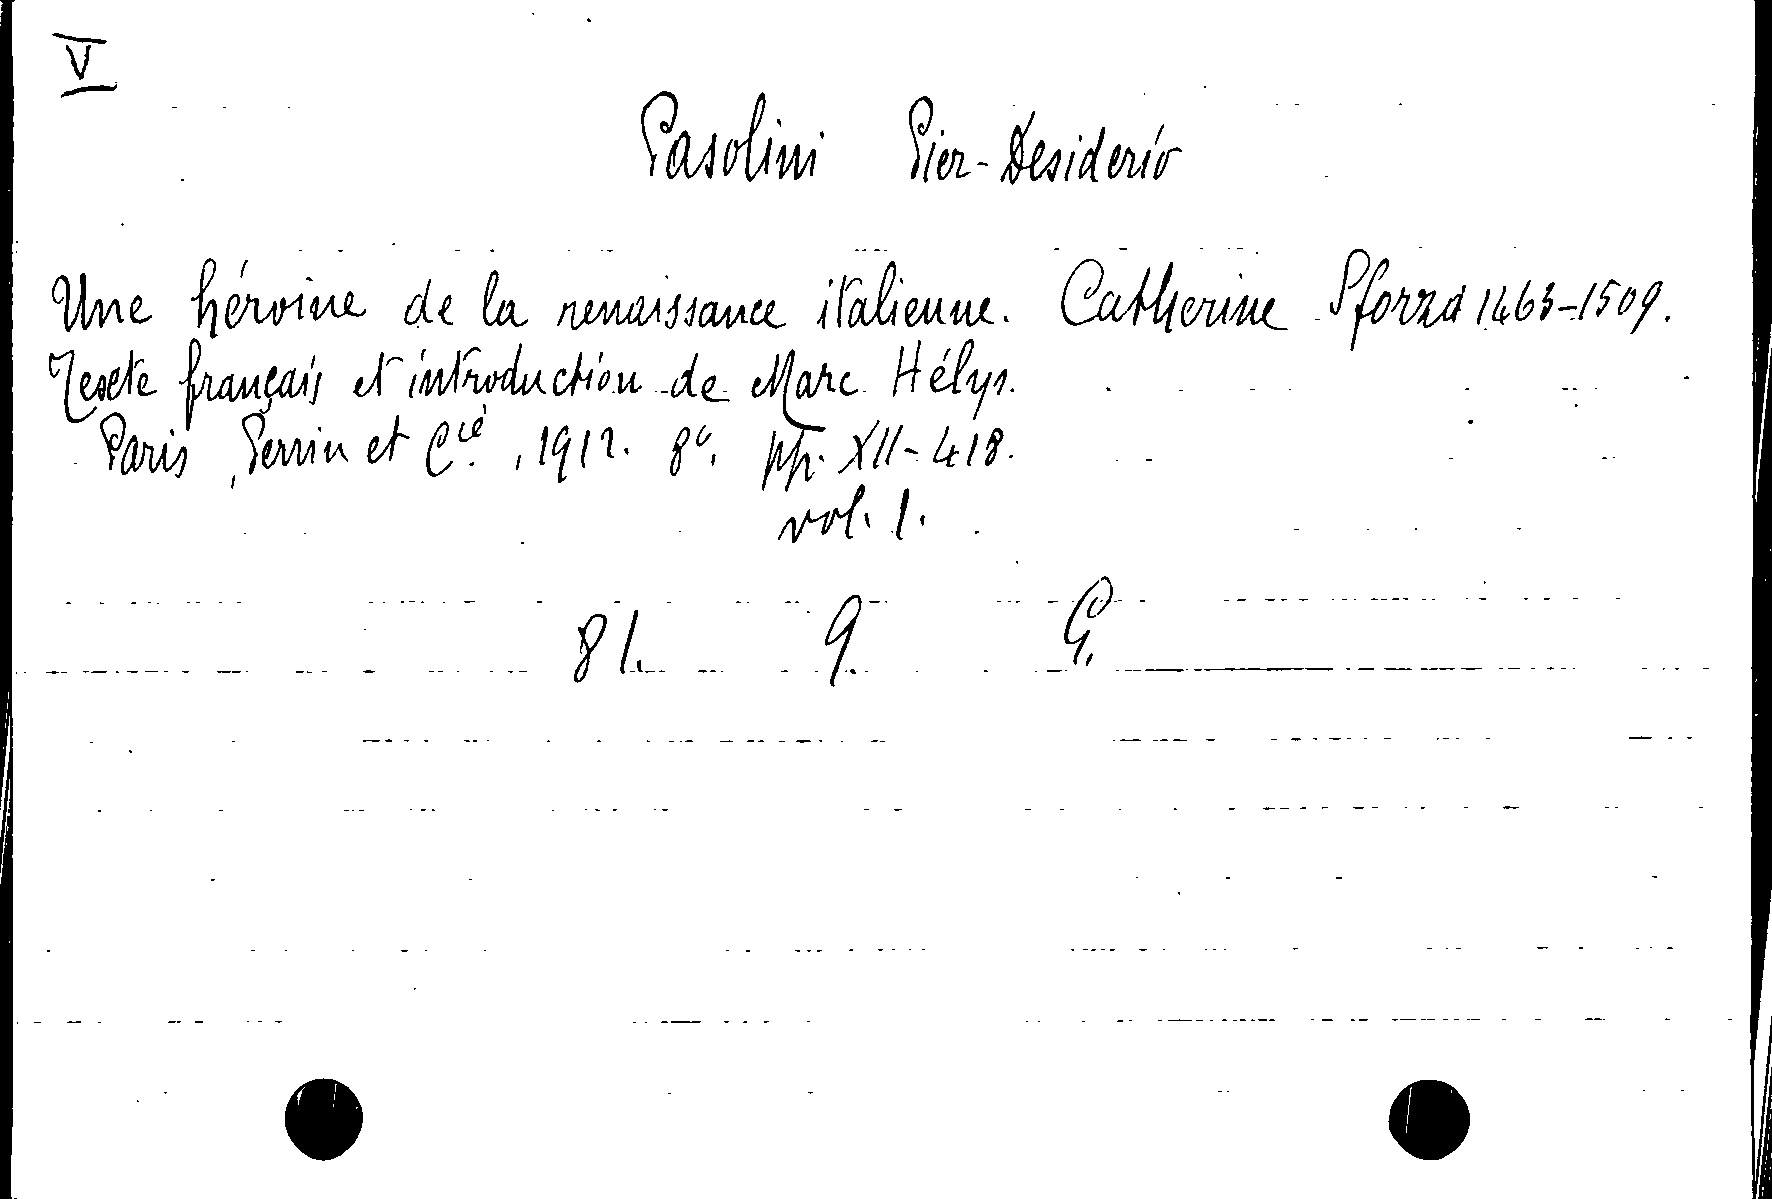 V
Pasolini Pier-Desiderio
Une héroine de la renaissance italienne. Catherine Sforza 1463-1509.
Texte français et introduction de Marc Hélys.
Paris, Perrin et Cie, 1912. 8°. pp. XII-418.
vol. 1.
81. 9. G.